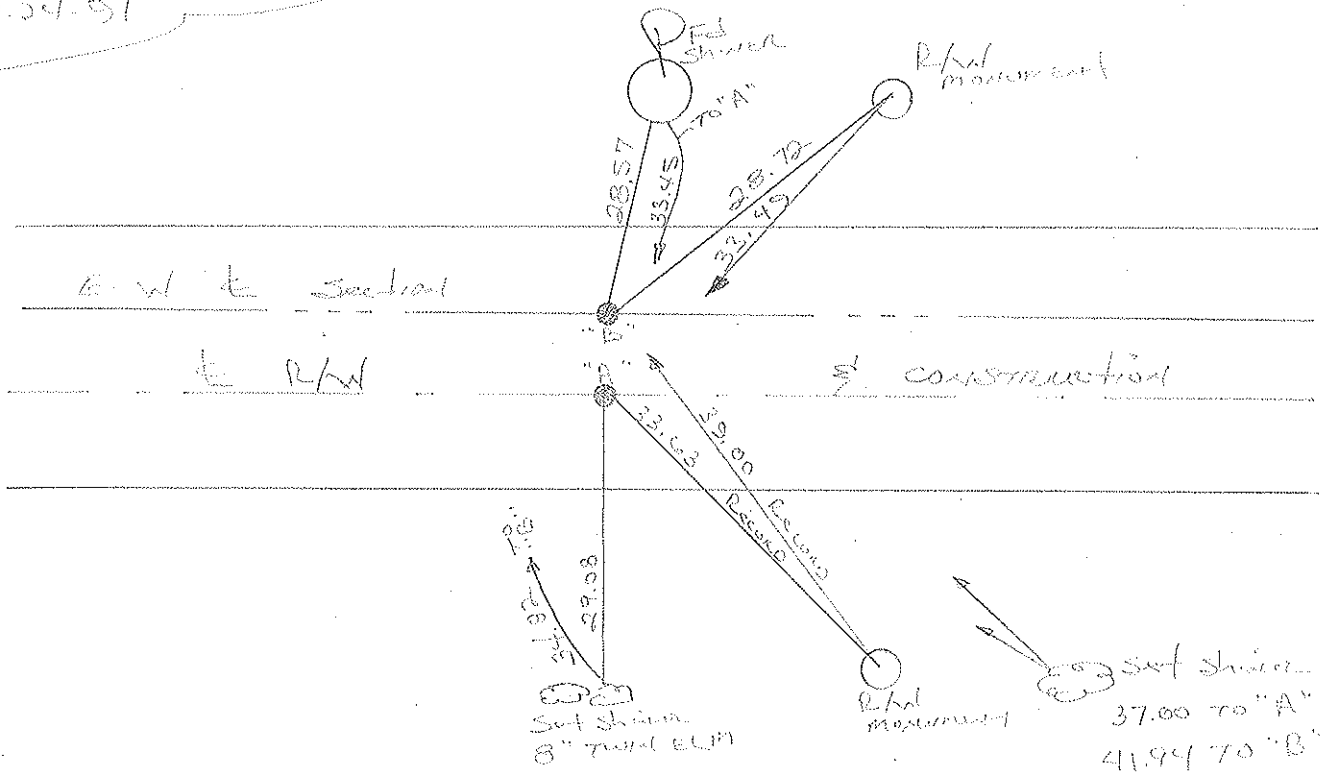 Fd
Shiner
R/W
monument
TO "A"
28.57
33.45
28.72
33.49
E-W ℄ Section
"B"
"A"
℄ R/W
& construction
33.63
Record
39.00
Record
29.08
"B"
Set Shiner
8" TWIN ELM
R/W
monument
Set Shiner
37.00 TO "A"
41.94 TO "B"